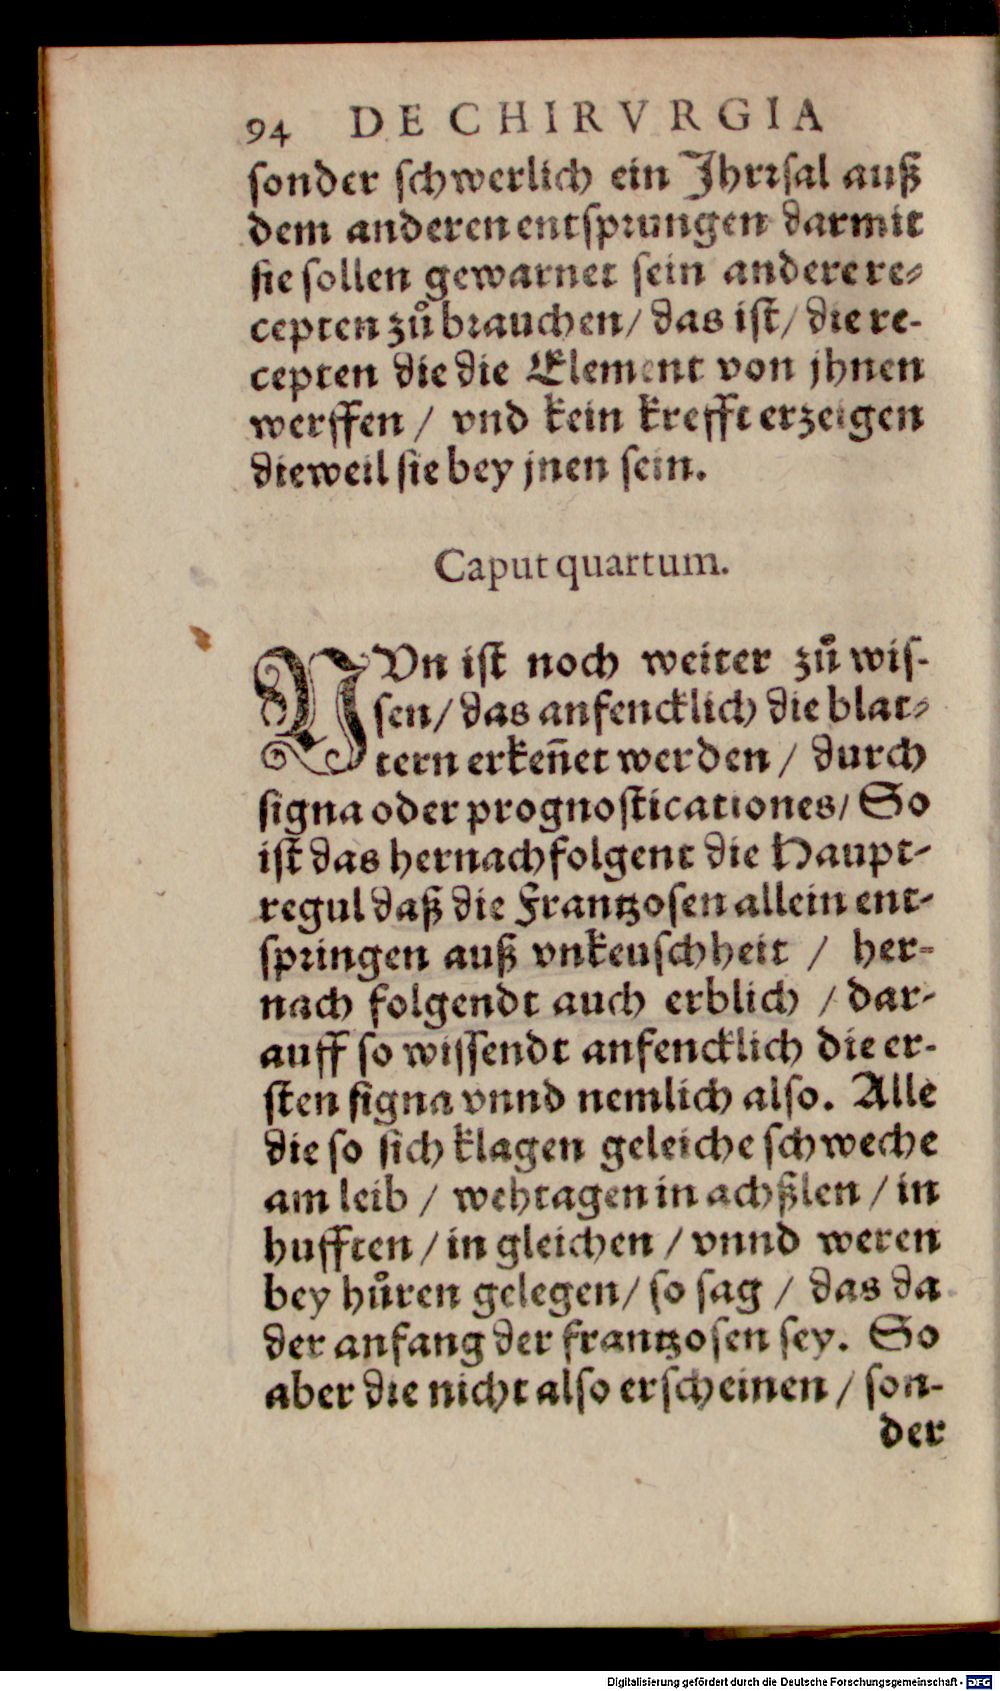 94 DE CHIRVRGIA
sonder schwerlich ein Jhrꝛsal auß
dem anderen entspꝛungen darmit
sie sollen gewarnet sein andere re⸗
cepten zů bꝛauchen/ das ist/ die re-
cepten die die Element von jhnen
werffen / vnd kein krefft erzeigen
dieweil sie bey jnen sein.
Caput quartum.
NVn ist noch weiter zů wis-
sen/ das anfencklich die blat⸗
tern erkeñet werden / durch
signa oder prognosticationes/ So
ist das hernachfolgent die Haupt-
regul daß die Frantzosen allein ent-
spꝛingen auß vnkeuschheit / her-
nach folgendt auch erblich / dar-
auff so wissendt anfencklich die er-
sten signa vnnd nemlich also. Alle
die so sich klagen geleiche schweche
am leib / wehtagen in achßlen / in
hufften / in gleichen / vnnd weren
bey hůren gelegen/ so sag / das da
der anfang der frantzosen sey. So
aber die nicht also erscheinen / son-
der
Digitalisierung gefördert durch die Deutsche Forschungsgemeinschaft - DFG